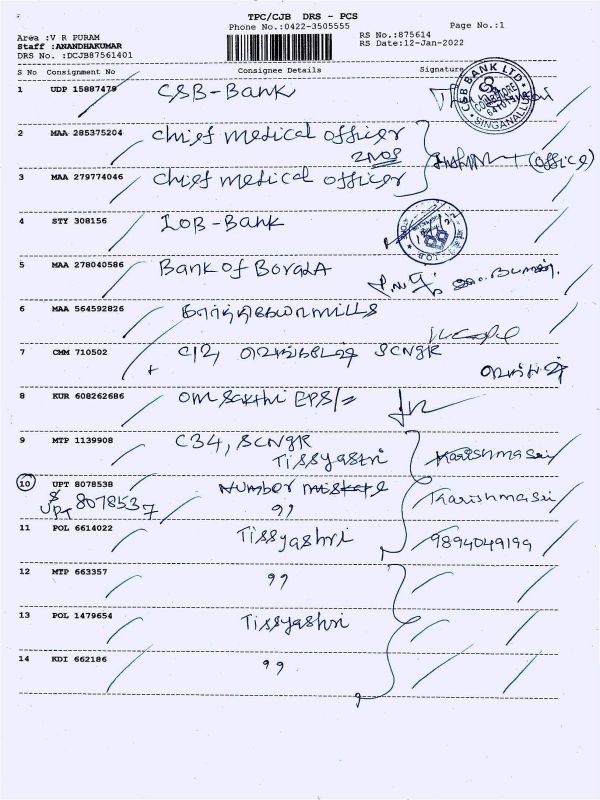 TPC/CJB DRS - PCS
Phone No.:0422-3505555
Page No.:1
Area :V R PURAM
RS No.:875614
Staff :ANANDHAKUMAR
RS Date:12-Jan-2022
DRS No. :DCJB87561401
S No Consignment No Consignee Details Signature
1 UDP 15887479 CSB-Bank
CSB BANK LTD.
COIMBATORE
SINGANALLUR
2 MAA 285375204 Chief medical officer
2 Nos
(office)
3 MAA 279774046 Chief medical officer
4 STY 308156 IOB-Bank
5 MAA 278040586 Bank of Boroda
6 MAA 564592826 mills
7 CMM 710502 C12, SCNGR
8 KUR 608262686 Om Sakthi EPS/=
9 MTP 1139908 C34, SCNGR
Tissyastri Karishmasri
10 UPT 8078538 Number miskate
& UPT 8078537 " Karishmasri
11 POL 6614022 Tissyashri 9894049199
12 MTP 663357 "
13 POL 1479654 Tissyashri
14 KDI 662186 "